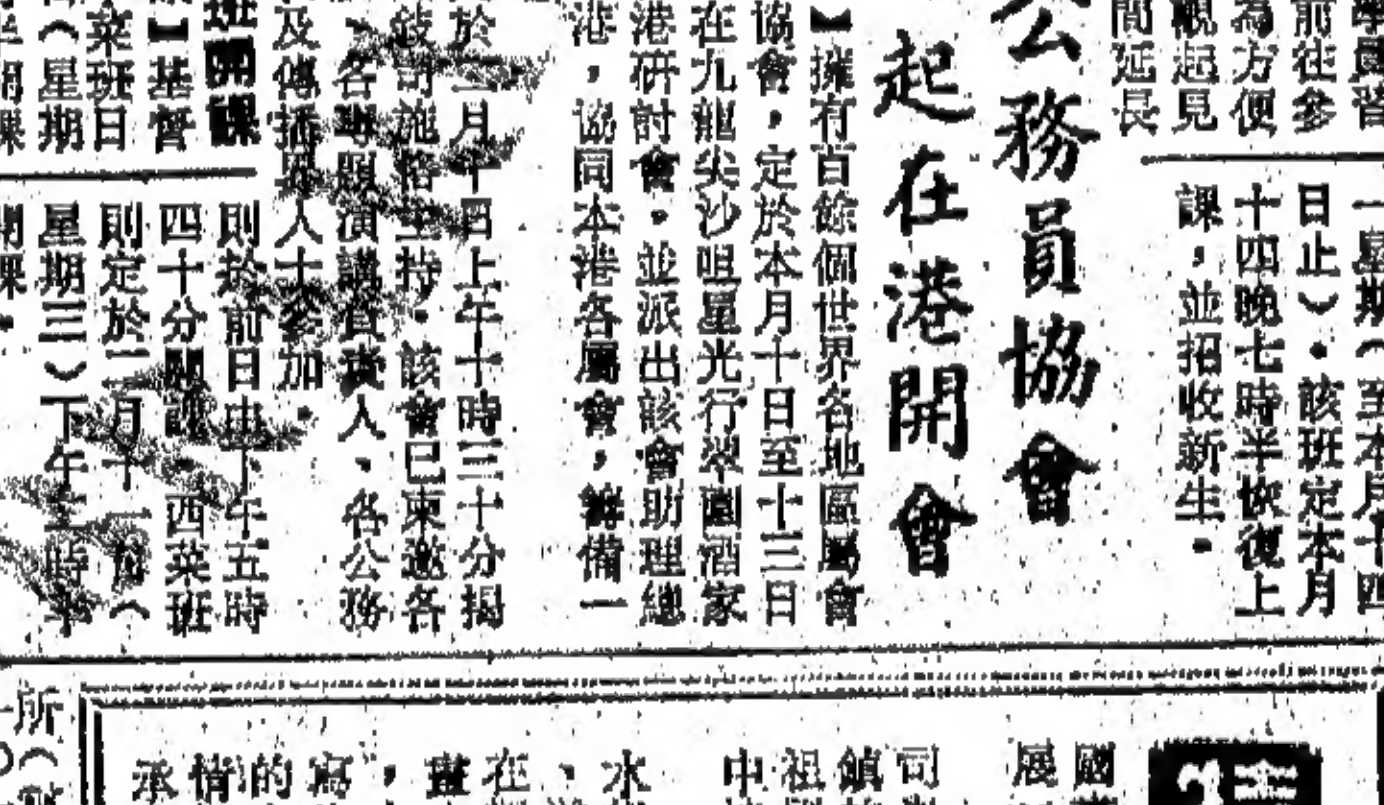 學員習
前往參
為方便
觀起見
間延長
一星期（至本月十四
日止）．該班定本月
十四晚七時半恢復上
課，並招收新生．
公務員協會
起在港開會
】擁有百餘個世界各地區屬會
協會，定於本月十日至十三日
在九龍尖沙咀星光行翠園酒家
港研討會．並派出該會助理總
港，協同本港各屬會，籌備一
於二月十日上午十時三十分揭
施 主持．該會已柬邀各
、各 演講負責人、各公務
及傳播界人士參加．
班開課
】基督
菜班日
（星期
則於前日由下午五時
四十分開課．西菜班
則定於二月十一 （
星期三）下午 時半
開課．
國
展
司
鎮
祖
中
水
、
在
畫
，
寫
的
情
承
所（